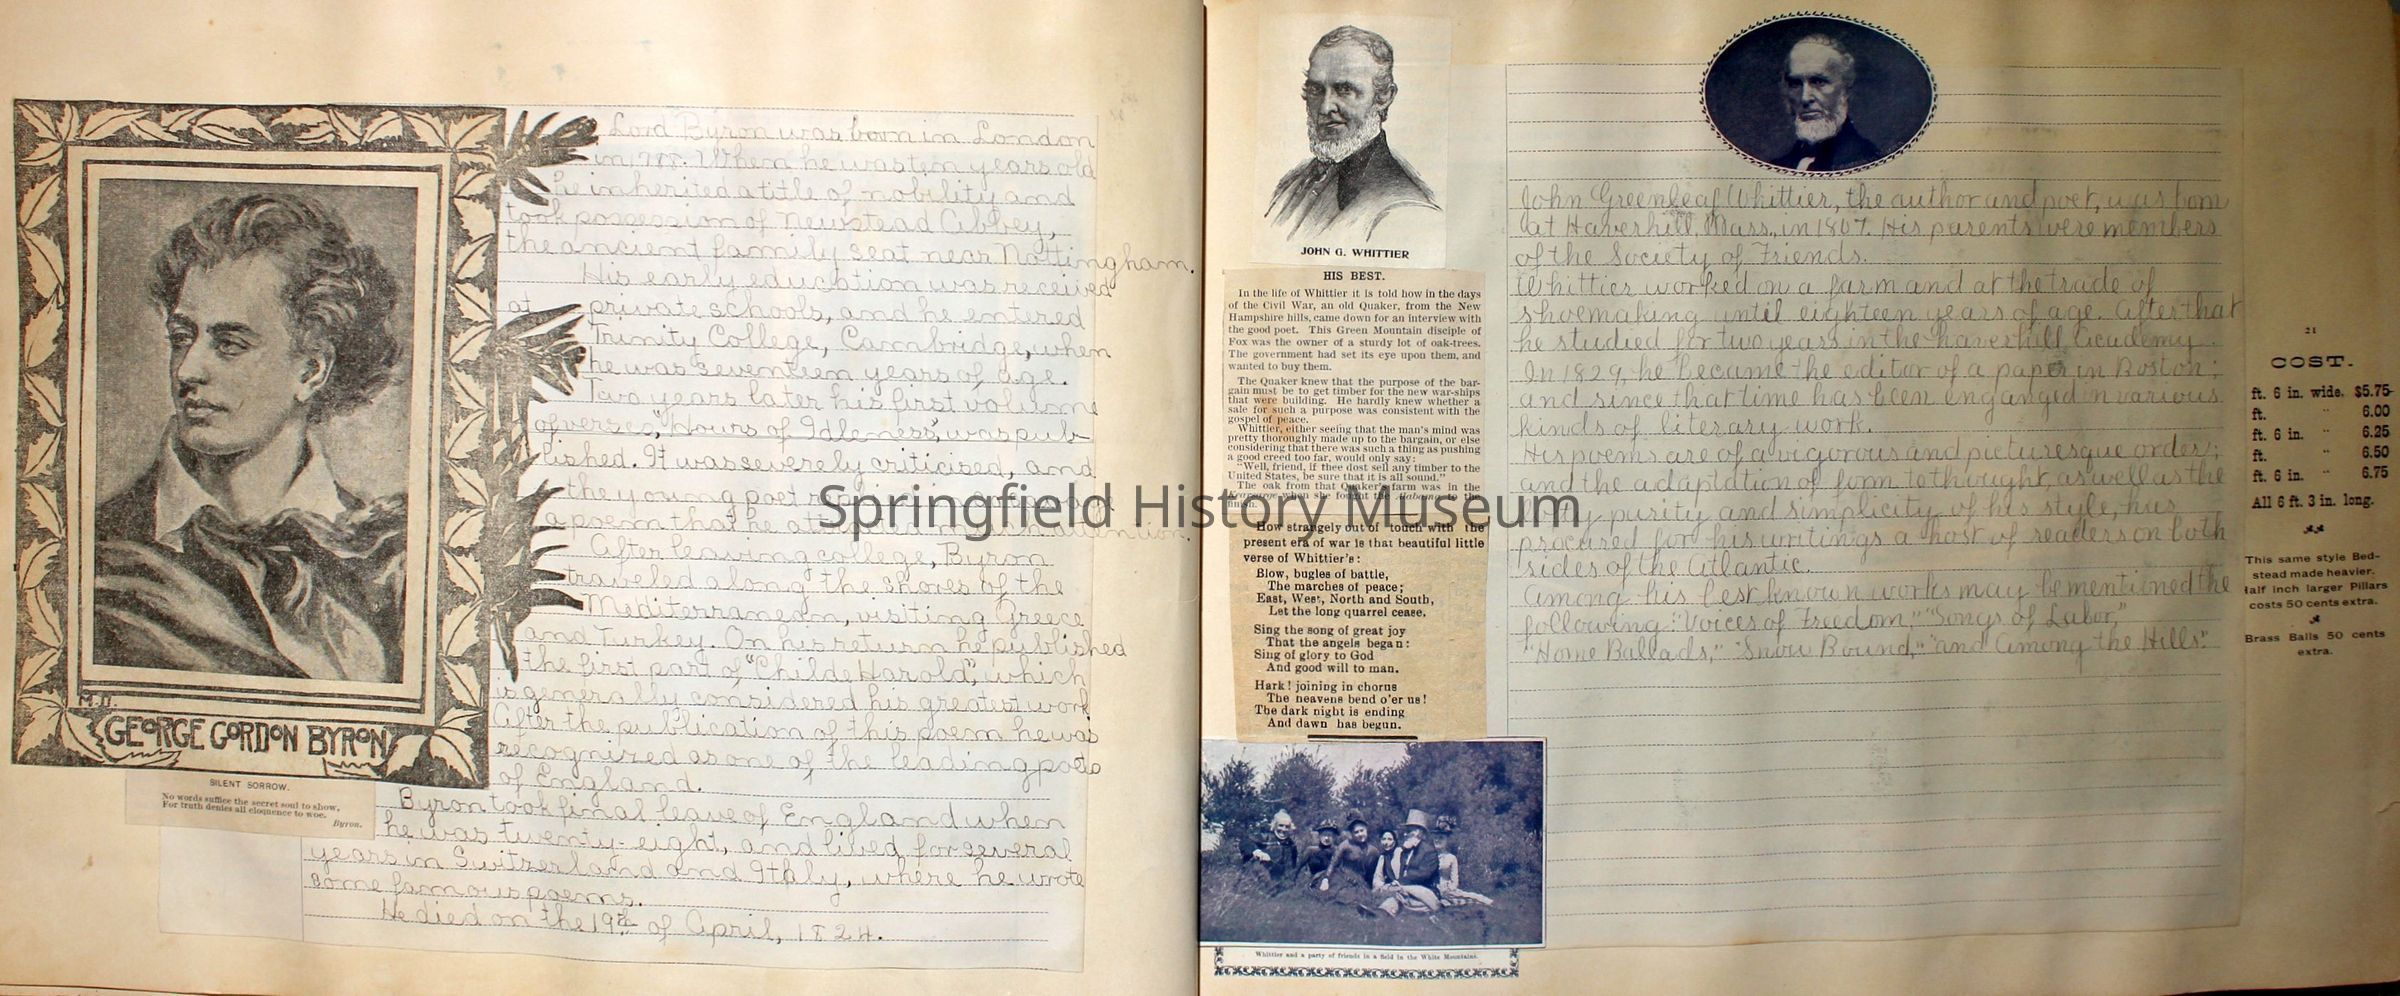 Lord Byron was born in London
in 1788. When he was ten years old
he inherited a title of nobility and
took possession of Newstead Abbey,
the ancient family seat near Nottingham.
His early education was received
at private schools, and he entered
Trinity College, Cambridge, when
he was seventeen years of age.
Two years later his first volume
of verses, "Hours of Idleness", was pub-
lished. It was severely criticised, and
the young poet
a poem that he
After leaving college, Byron
traveled along the shores of the
Mediterranean, visiting Greece
and Turkey. On his return he published
the first part of "Childe Harold", which
is generally considered his greatest work.
After the publication of this poem he was
recognized as one of the leading poets
of England.
Byron took final leave of England when
he was twenty-eight, and lived for several
years in Switzerland and Italy, where he wrote
some famous poems.
He died on the 19th of April, 1824.
M.D.
GEORGE GORDON BYRON
SILENT SORROW.
No words suffice the secret soul to show,
For truth denies all eloquence to woe.
Byron.
JOHN G. WHITTIER
HIS BEST.
In the life of Whittier it is told how in the days
of the Civil War, an old Quaker, from the New
Hampshire hills, came down for an interview with
the good poet. This Green Mountain disciple of
Fox was the owner of a sturdy lot of oak-trees.
The government had set its eye upon them, and
wanted to buy them.
The Quaker knew that the purpose of the bar-
gain must be to get timber for the new war-ships
that were building. He hardly knew whether a
sale for such a purpose was consistent with the
gospel of peace.
Whittier, either seeing that the man's mind was
pretty thoroughly made up to the bargain, or else
considering that there was such a thing as pushing
a good creed too far, would only say:
"Well, friend, if thee dost sell any timber to the
United States, be sure that it is all sound."
The oak from that Quaker's farm was in the
Kearsarge when she fought the Alabama to the
finish.
How strangely out of touch with the
present era of war is that beautiful little
verse of Whittier's:
Blow, bugles of battle,
The marches of peace;
East, West, North and South,
Let the long quarrel cease,
Sing the song of great joy
That the angels began:
Sing of glory to God
And good will to man.
Hark! joining in chorus
The heavens bend o'er us!
The dark night is ending
And dawn has begun.
Whittier and a party of friends in a field in the White Mountains.
John Greenleaf Whittier, the author and poet, was born
at Haverhill, Mass., in 1807. His parents were members
of the Society of Friends.
Whittier worked on a farm and at the trade of
shoemaking until eighteen years of age. After that
he studied for two years in the haverhill Academy.
In 1829, he became the editor of a paper in Boston;
and since that time has been enganged in various
kinds of literary work.
His poems are of a vigorous and picturesque order;
and the adaptation of form to thought, as well as the
purity and simplicity of his style, has
procured for his writings a host of readers on both
sides of the Atlantic.
Among his best known works may be mentioned the
following: "Voices of Freedom," "Songs of Labor,"
"Home Ballads," "Snow Bound," "and Among the Hills."
21
COST.
ft. 6 in. wide, $5.75
ft. " 6.00
ft. 6 in. " 6.25
ft. " 6.50
ft. 6 in. " 6.75
All 6 ft. 3 in. long.
This same style Bed-
stead made heavier.
Half inch larger Pillars
costs 50 cents extra.
Brass Balls 50 cents
extra.
Springfield History Museum